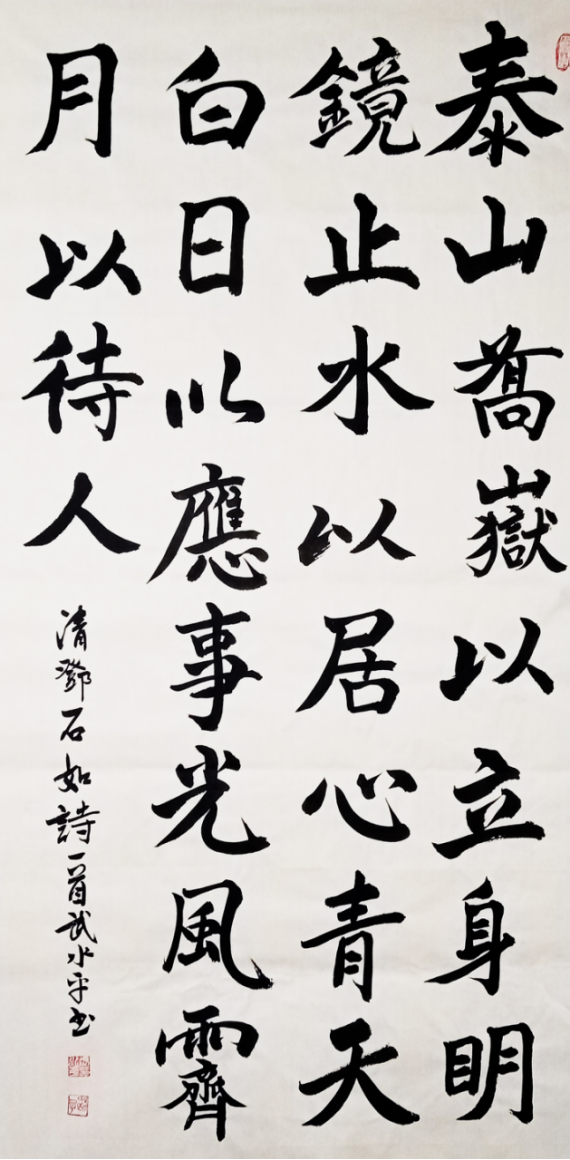 泰山喬嶽以立身明
鏡止水以居心青天
白日以應事光風霽
月以待人
清鄧石如詩一首武水平书